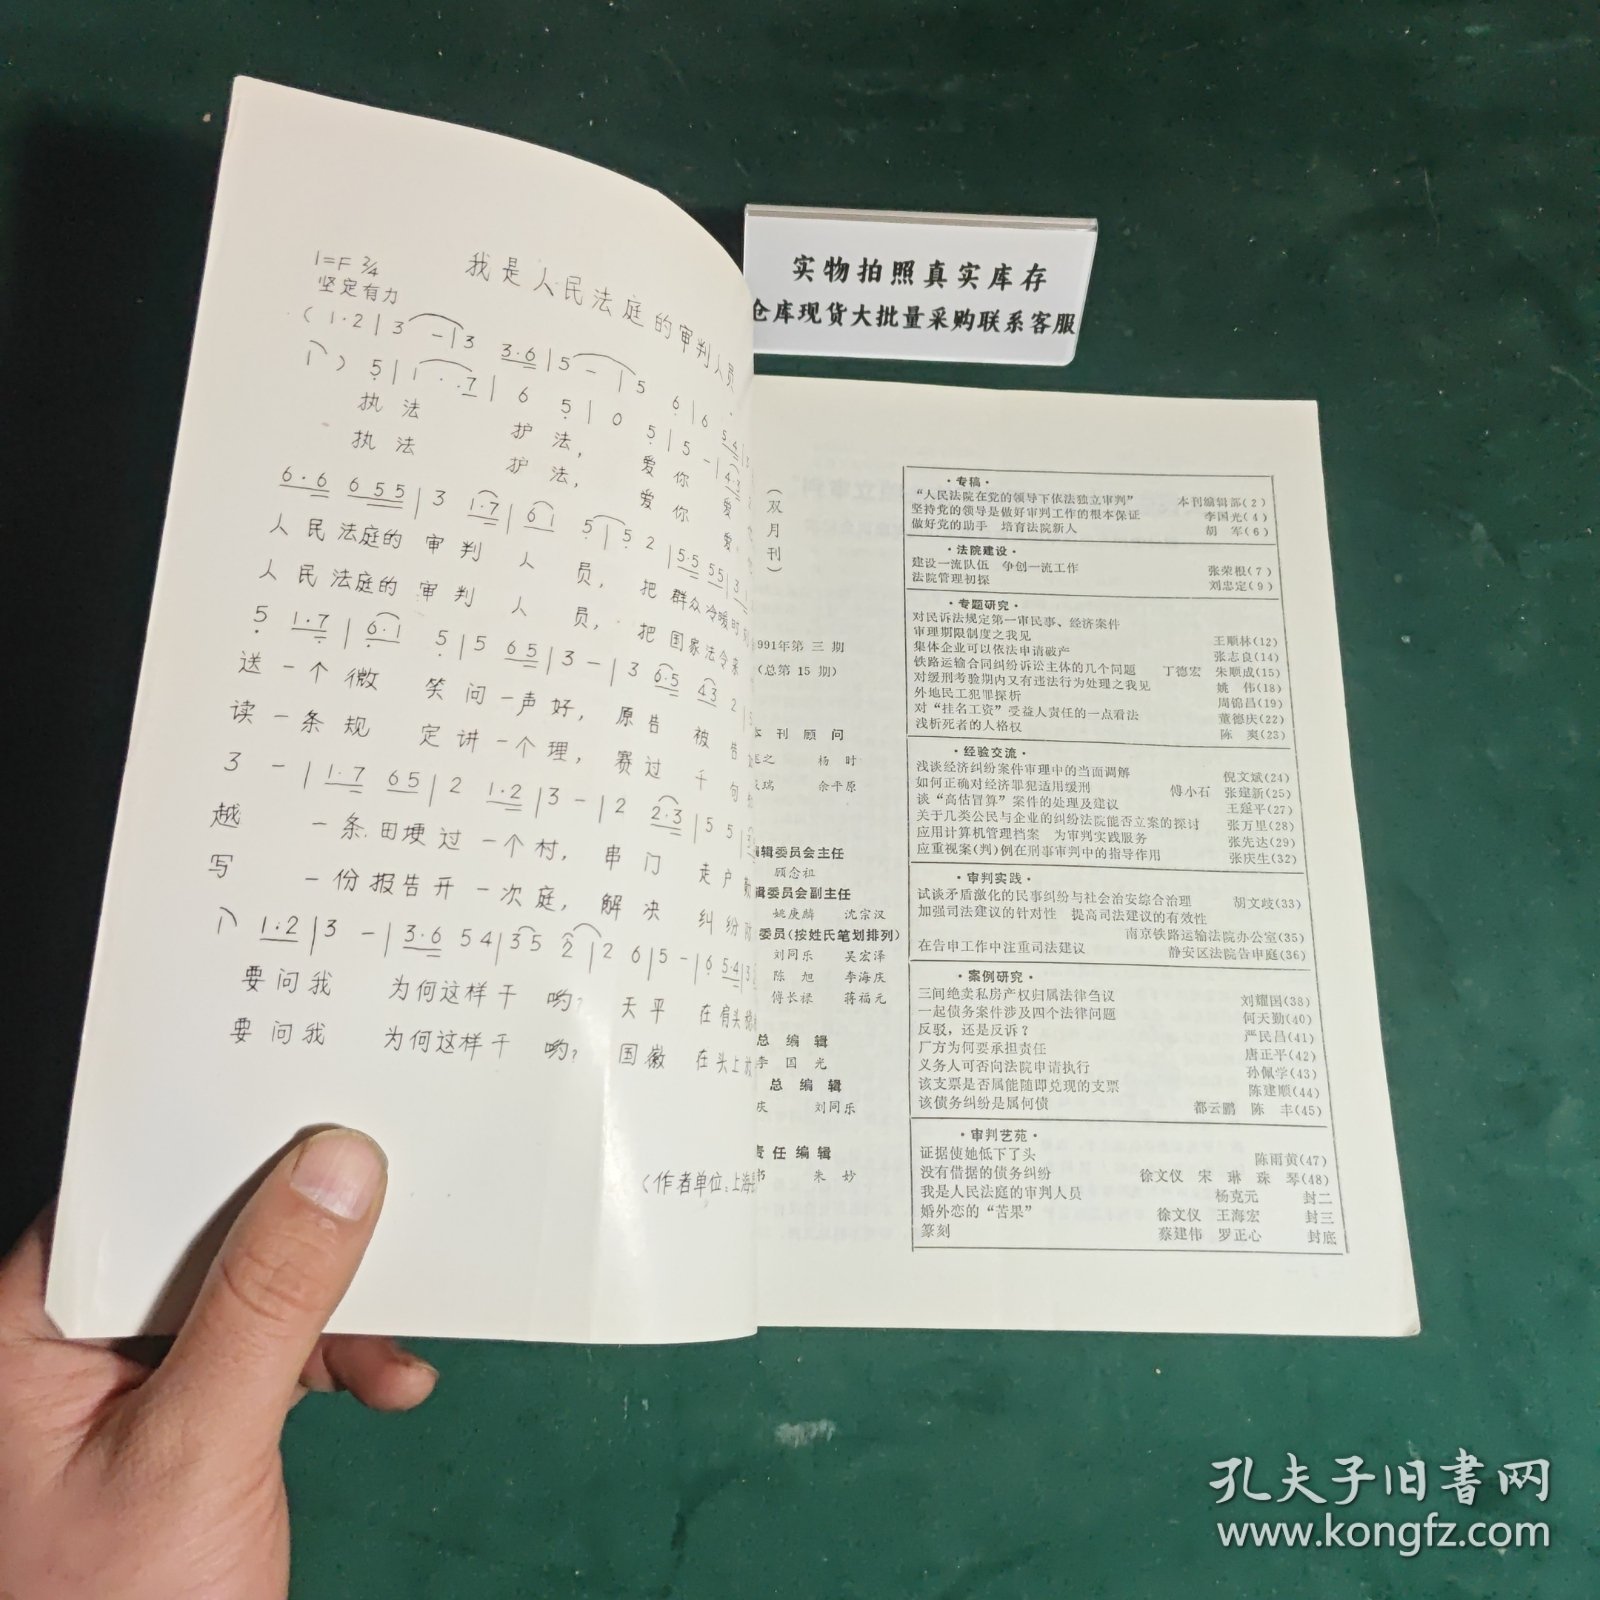 实物拍照真实库存
仓库现货大批量采购联系客服
我是人民法庭的审判人员
1=F 2/4
坚定有力
执法 护法, 爱你 爱
执法 护法, 爱你 爱
人民法庭的审判人员, 把群众冷暖时刻
人民法庭的审判人员, 把国家法令来
送一个微笑问一声好, 原告被告
读一条规定讲一个理, 赛过千句
越一条田埂过一个村, 串门走户
写一份报告开一次庭, 解决纠纷
要问我 为何这样干哟? 天平在肩头
要问我 为何这样干哟? 国徽在头上
(作者单位:上海
(双月刊)
991年第三期
(总第15期)
本刊顾问
之 杨时
瑞 余平原
编辑委员会主任
顾念祖
辑委员会副主任
姚庚麟 沈宗汉
委员(按姓氏笔划排列)
刘同乐 吴宏泽
陈旭 李海庆
傅长禄 蒋福元
总编辑
李国光
总编辑
庆 刘同乐
责任编辑
书 朱妙
·专稿·
“人民法院在党的领导下依法独立审判” 本刊编辑部(2)
坚持党的领导是做好审判工作的根本保证 李国光(4)
做好党的助手 培育法院新人 胡军(6)
·法院建设·
建设一流队伍 争创一流工作 张荣根(7)
法院管理初探 刘忠定(9)
·专题研究·
对民诉法规定第一审民事、经济案件
审理期限制度之我见 王顺林(12)
集体企业可以依法申请破产 张志良(14)
铁路运输合同纠纷诉讼主体的几个问题 丁德宏 朱顺成(15)
对缓刑考验期内又有违法行为处理之我见 姚伟(18)
外地民工犯罪探析 周锦昌(19)
对“挂名工资”受益人责任的一点看法 董德庆(22)
浅析死者的人格权 陈爽(23)
·经验交流·
浅谈经济纠纷案件审理中的当面调解 倪文斌(24)
如何正确对经济罪犯适用缓刑 傅小石 张建新(25)
谈“高估冒算”案件的处理及建议 王莛平(27)
关于几类公民与企业的纠纷法院能否立案的探讨 张万里(28)
应用计算机管理档案 为审判实践服务 张先达(29)
应重视案(判)例在刑事审判中的指导作用 张庆生(32)
·审判实践·
试谈矛盾激化的民事纠纷与社会治安综合治理 胡文歧(33)
加强司法建议的针对性 提高司法建议的有效性
南京铁路运输法院办公室(35)
在告申工作中注重司法建议 静安区法院告申庭(36)
·案例研究·
三间绝卖私房产权归属法律刍议 刘耀国(38)
一起债务案件涉及四个法律问题 何天勤(40)
反驳,还是反诉? 严民昌(41)
厂方为何要承担责任 唐正平(42)
义务人可否向法院申请执行 孙佩学(43)
该支票是否属能随即兑现的支票 陈建顺(44)
该债务纠纷是属何债 都云鹏 陈丰(45)
·审判艺苑·
证据使她低下了头 陈雨黄(47)
没有借据的债务纠纷 徐文仪 宋琳 珠琴(48)
我是人民法庭的审判人员 杨克元 封二
婚外恋的“苦果” 徐文仪 王海宏 封三
篆刻 蔡建伟 罗正心 封底
孔夫子旧书网
www.kongfz.com